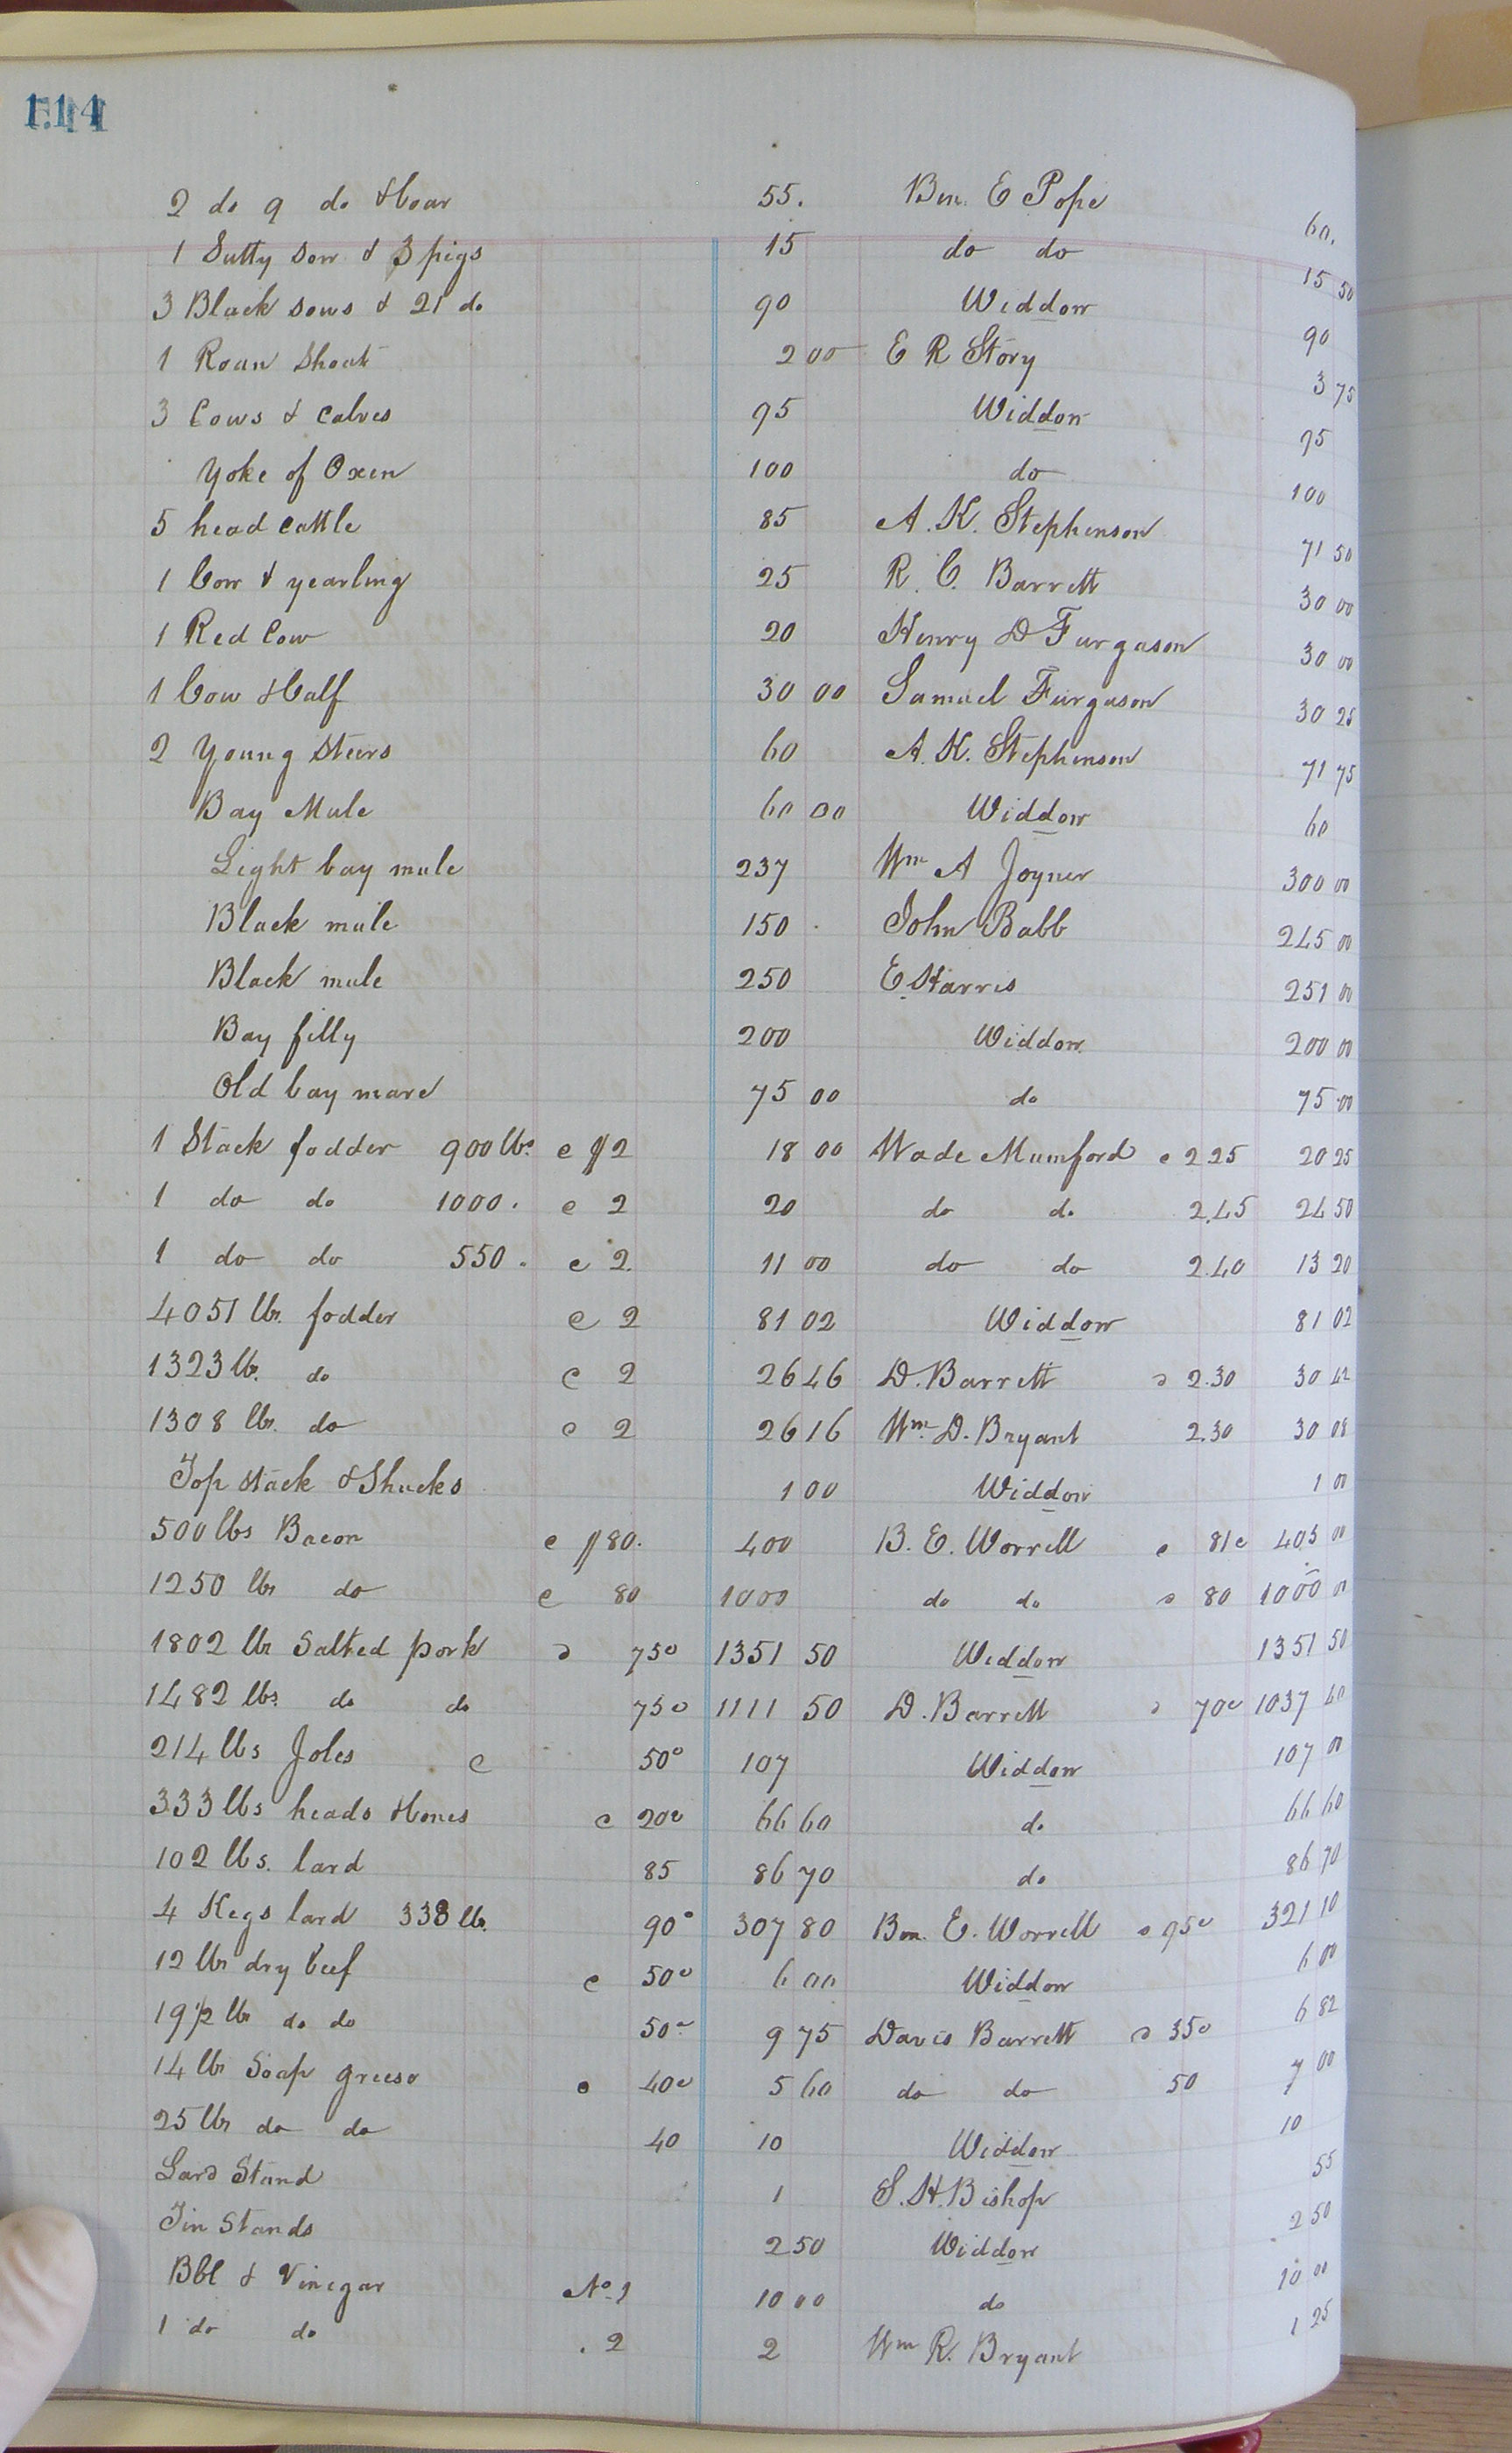 114
2 do 9 do & boar 55. Bm. E Pope 60.
1 Sutty Sow & 3 pigs 15 do do 15 50
3 Black Sows & 21 do 90 Widdow 90
1 Roan Shoat 2 00 E R Story 3 75
3 Cows & Calves 95 Widdow 95
Yoke of Oxen 100 do 100
5 head cattle 85 A. K. Stephenson 71 50
1 Cow & yearling 25 R. C. Barrett 30 00
1 Red Cow 20 Henry D Furgason 30 00
1 Cow & Calf 30 00 Samuel Furgason 30 25
2 Young Steers 60 A. K. Stephenson 71 75
Bay Mule 60 00 Widdow 60
Light bay mule 237 Wm A Joyner 300 00
Black mule 150 John Babb 245 00
Black mule 250 E Harris 251 00
Bay filly 200 Widdow 200 00
Old bay mare 75 00 do 75 00
1 Stack fodder 900 lbs. @ $2 18 00 Wade Mumford @ 2 25 20 25
1 do do 1000. @ 2 20 do do 2.45 24 50
1 do do 550. @ 2. 11 00 do do 2.40 13 20
4051 lbs. fodder @ 2 81 02 Widdow 81 02
1323 lbs. do @ 2 26 46 D. Barrett @ 2.30 30 42
1308 lbs. do @ 2 26 16 Wm. D. Bryant 2.30 30 08
Top stack & Shucks 1 00 Widdow 1 00
500 lbs Bacon @ $80. 400 B. E. Worrell @ 81c 405 00
1250 lbs do @ 80 1000 do do @ 80 1000 00
1802 lbs Salted pork @ 75c 1351 50 Widdow 1351 50
1482 lbs. do do 75c 1111 50 D. Barrett @ 70c 1037 40
214 lbs Joles @ 50c 107 Widdow 107 00
333 lbs heads & bones @ 20c 66 60 do 66 60
102 lbs. lard 85 86 70 do 86 70
4 Kegs lard 338 lbs. 90c 307 80 Bm. E. Worrell @ 95c 321 10
12 lbs dry beef @ 50c 6 00 Widdow 6 00
19 1/2 lbs do do 50c 9 75 Davis Barrett @ 35c 6 82
14 lbs Soap greese @ 40c 5 60 do do 50 7 00
25 lbs do do 40 10 Widdow 10
Lard Stand 1 S. H. Bishop 55
Tin Stands 2 50 Widdow 2 50
Bbl & Vinegar No. 1 10 00 do 10 00
1 do do . 2 2 Wm R. Bryant 1 25